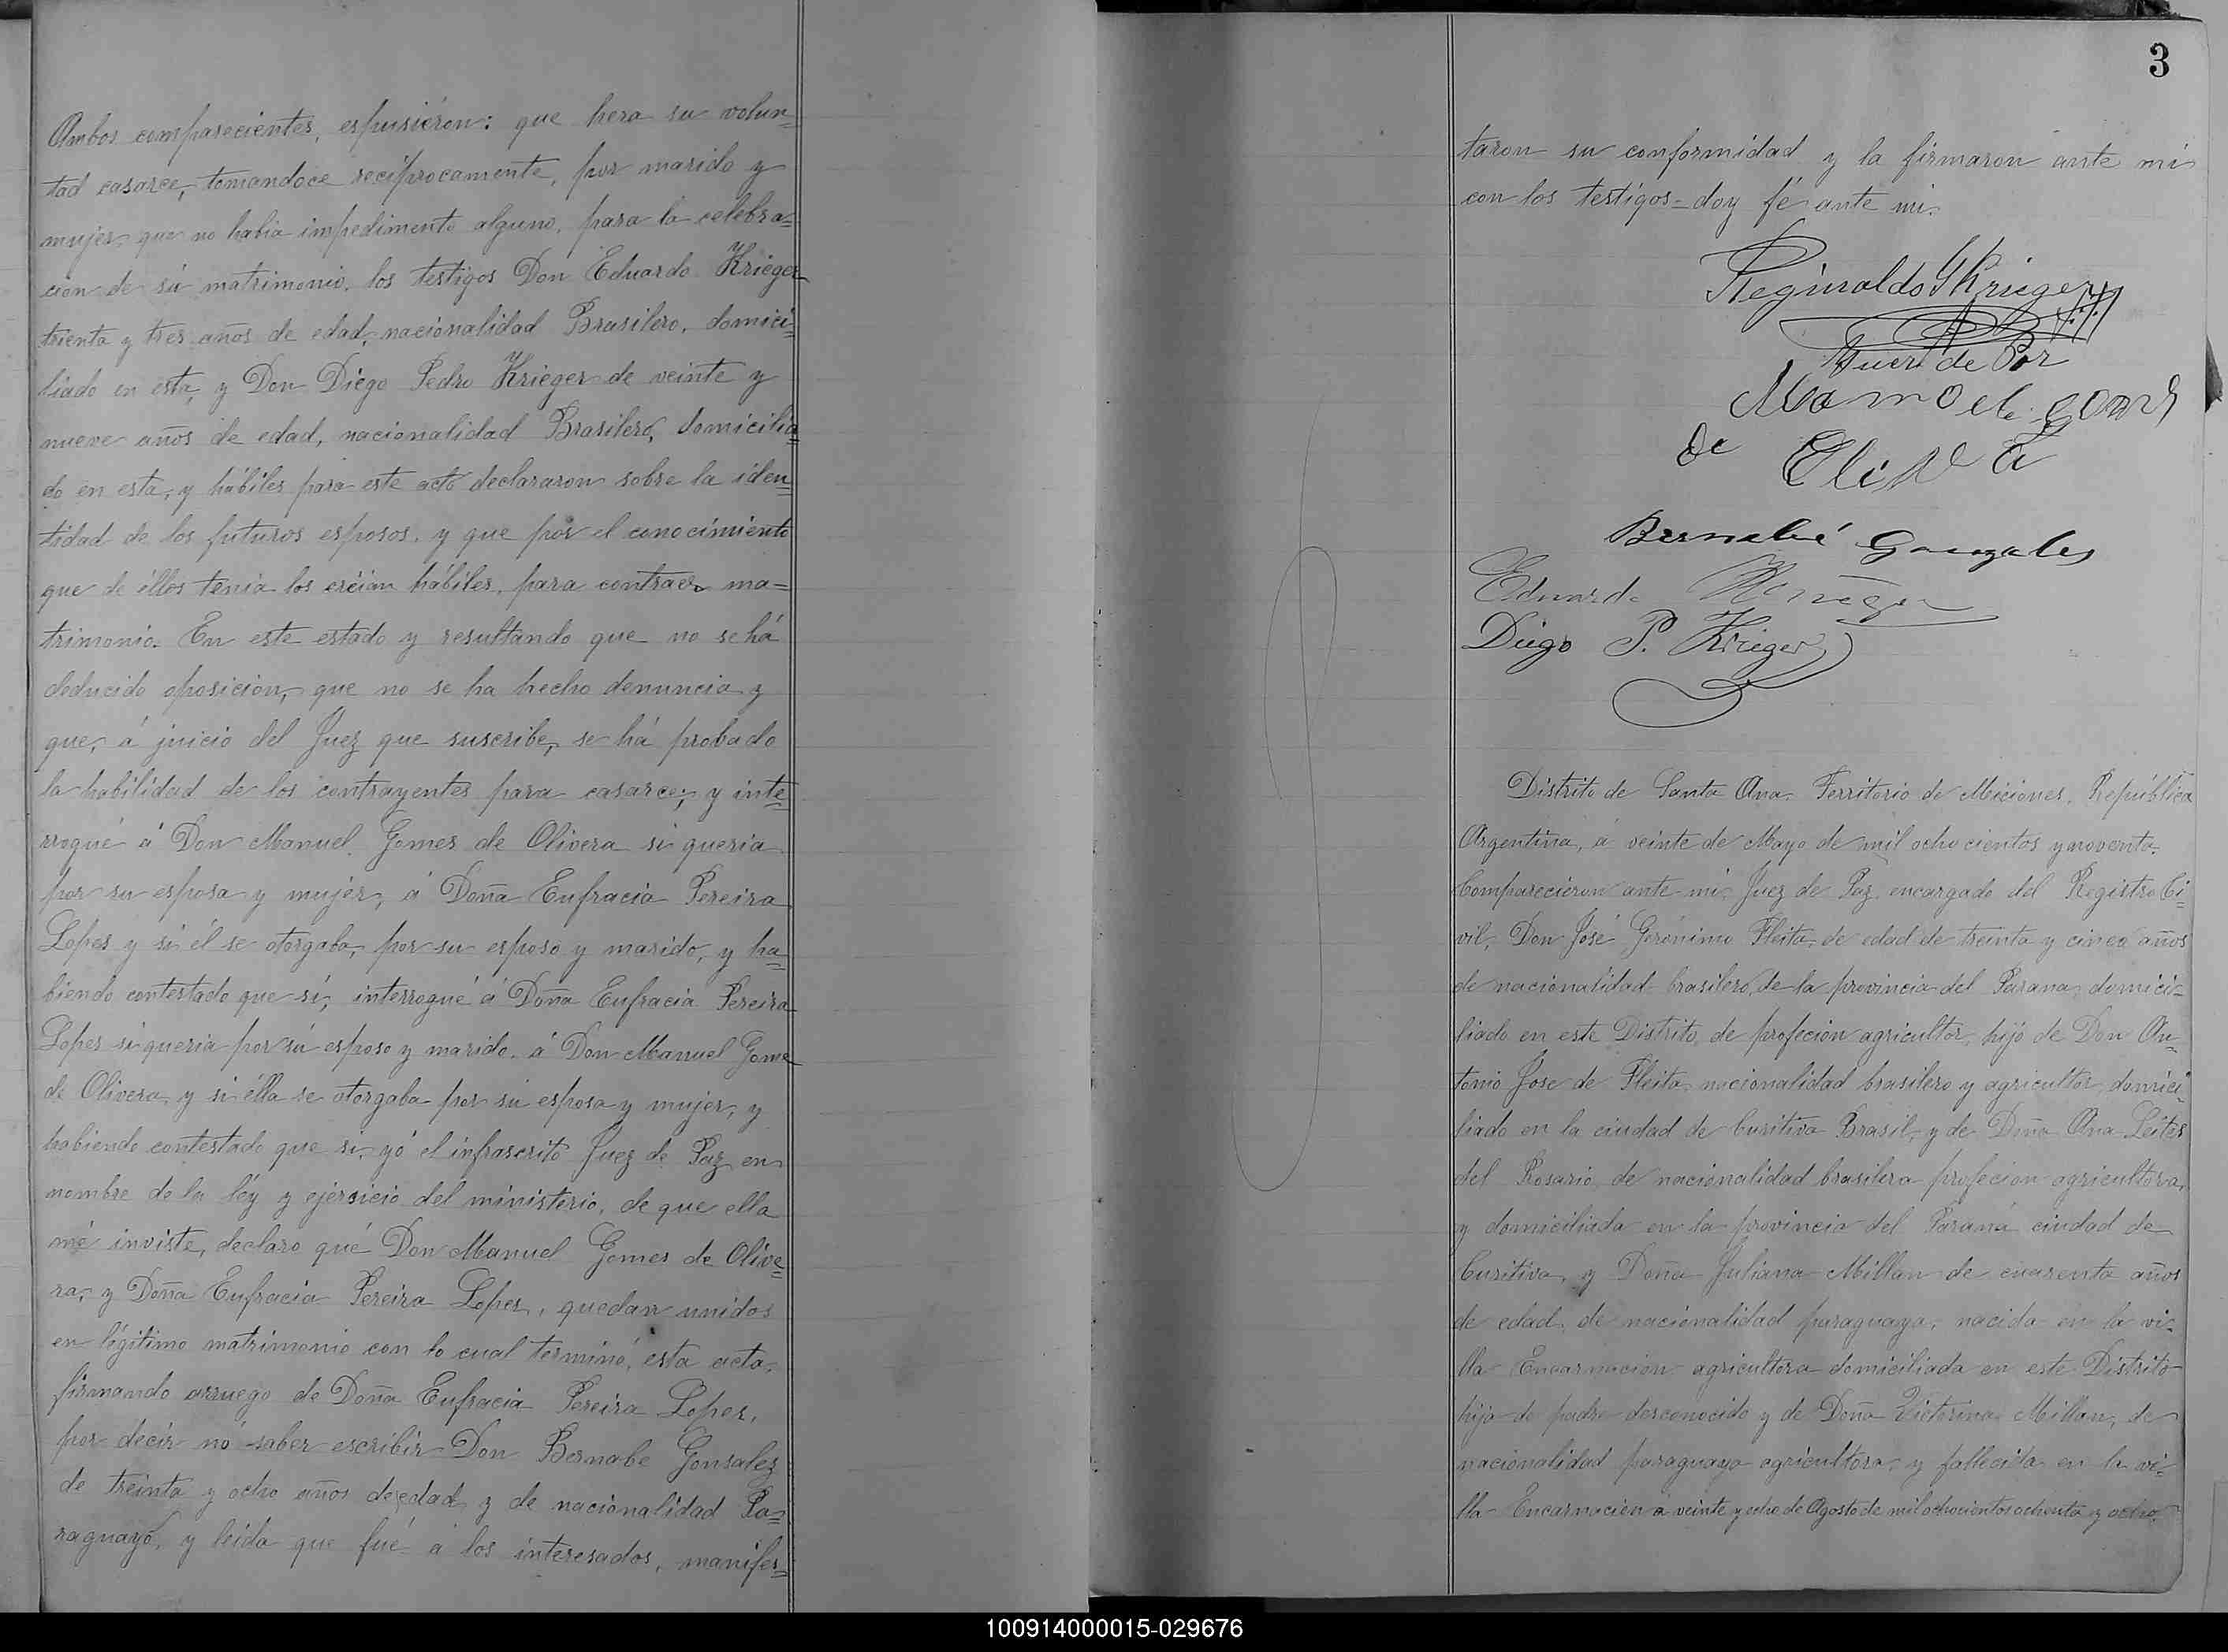 Ambos comparecientes, espusiéron: que hera su volun=
tad casarce, tomandoce reciprocamente, por marido y
mujer, que no habia impedimento alguno, para la celebra=
cion de sú matrimonio, los testigos Don Eduardo Krieger
trienta y tres años de edad, nacionalidad Brasilero, domici=
liado en esta, y Don Diego Pedro Krieger de veinte y
nueve años de edad, nacionalidad Brasilero, domicilia=
do en esta, y hábiles para este acto declararon sobre la iden=
tidad de los futuros esposos, y que por el conocimiento
que de éllos tenia los créian hábiles, para contraer ma=
trimonio. En este estado y resultando que no se há
deducido oposicion, que no se ha hecho denuncia y
que, á juicio del Juez que suscribe, se há probado
la habilidad de los contrayentes para casarce; y inte=
rrogué á Don Manuel Gomes de Olivera si queria
por su esposa y mujer, á Doña Eufracia Pereira
Lopes y si él se otorgaba, por su esposo y marido, y ha=
biendo contestado que sí, interrogué á Doña Eufracia Pereira
Lopes si queria por sú esposo y marido, á Don Manuel Gome
de Olivera, y si élla se otorgaba por su esposa y mujer, y
habiendo contestado que si, yó el infrascrito Juez de Paz en
nombre de la léy y ejersicio del ministerio, de que ella
mé inviste, declaro qué Don Manuel Gomes de Olive=
ra, y Doña Eufracia Pereira Lopes, quedan unidos
en légitimo matrimonio con lo cual terminó, esta acta,
firmando arruego de Doña Eufracia Pereira Lopes,
por decir nó saber escribir Don Bernabe Gonsalez
de treinta y ocho años de edad y de nacionalidad Pa=
raguayó, y leida que fué á los interesados, manifes=
3
taron su conformidad y la firmaron ante mi
con los testigos - doy fé ante mi.
Reginaldo G Krieger
Juez de Paz
Manoel gomes
de Olivera
Bernabé Gonzales
Eduardo Krieger
Diego P. Krieger
Distrito de Santa Ana, Territorio de Miciones, República
Argentina, á veinte de Mayo de mil ochocientos y noventa.
Comparecieron ante mi, Juez de Paz, encargado del Registro Ci=
vil, Don José Gerónimo Fleita, de edad de treinta y cinco años
de nacionalidad brasilero, de la provincia del Parana, domici=
liado en este Distrito, de profecion agricultor, hijo de Don An=
tonio Jose de Fleita, nacionalidad brasilero y agricultor, domici=
liado en la ciudad de Curitiva Brasil, y de Doña Ana Leites
del Rosario, de nacionalidad brasilera profecion agricultora,
y domiciliada en la provincia del Paraná ciudad de
Curitiva, y Doña Juliana Millan de cuarenta años
de edad, de nacionalidad paraguaya, nacida en la vi=
lla Encarnacion agricultora domiciliada en este Distrito
hija de padre desconocido y de Doña Victorina Millan, de
nacionalidad paraguaya agricultora, y fallecida en la vi=
lla Encarnacion a veinte y ocho de Agosto de mil ochocientos ochenta y ocho.
100914000015-029676